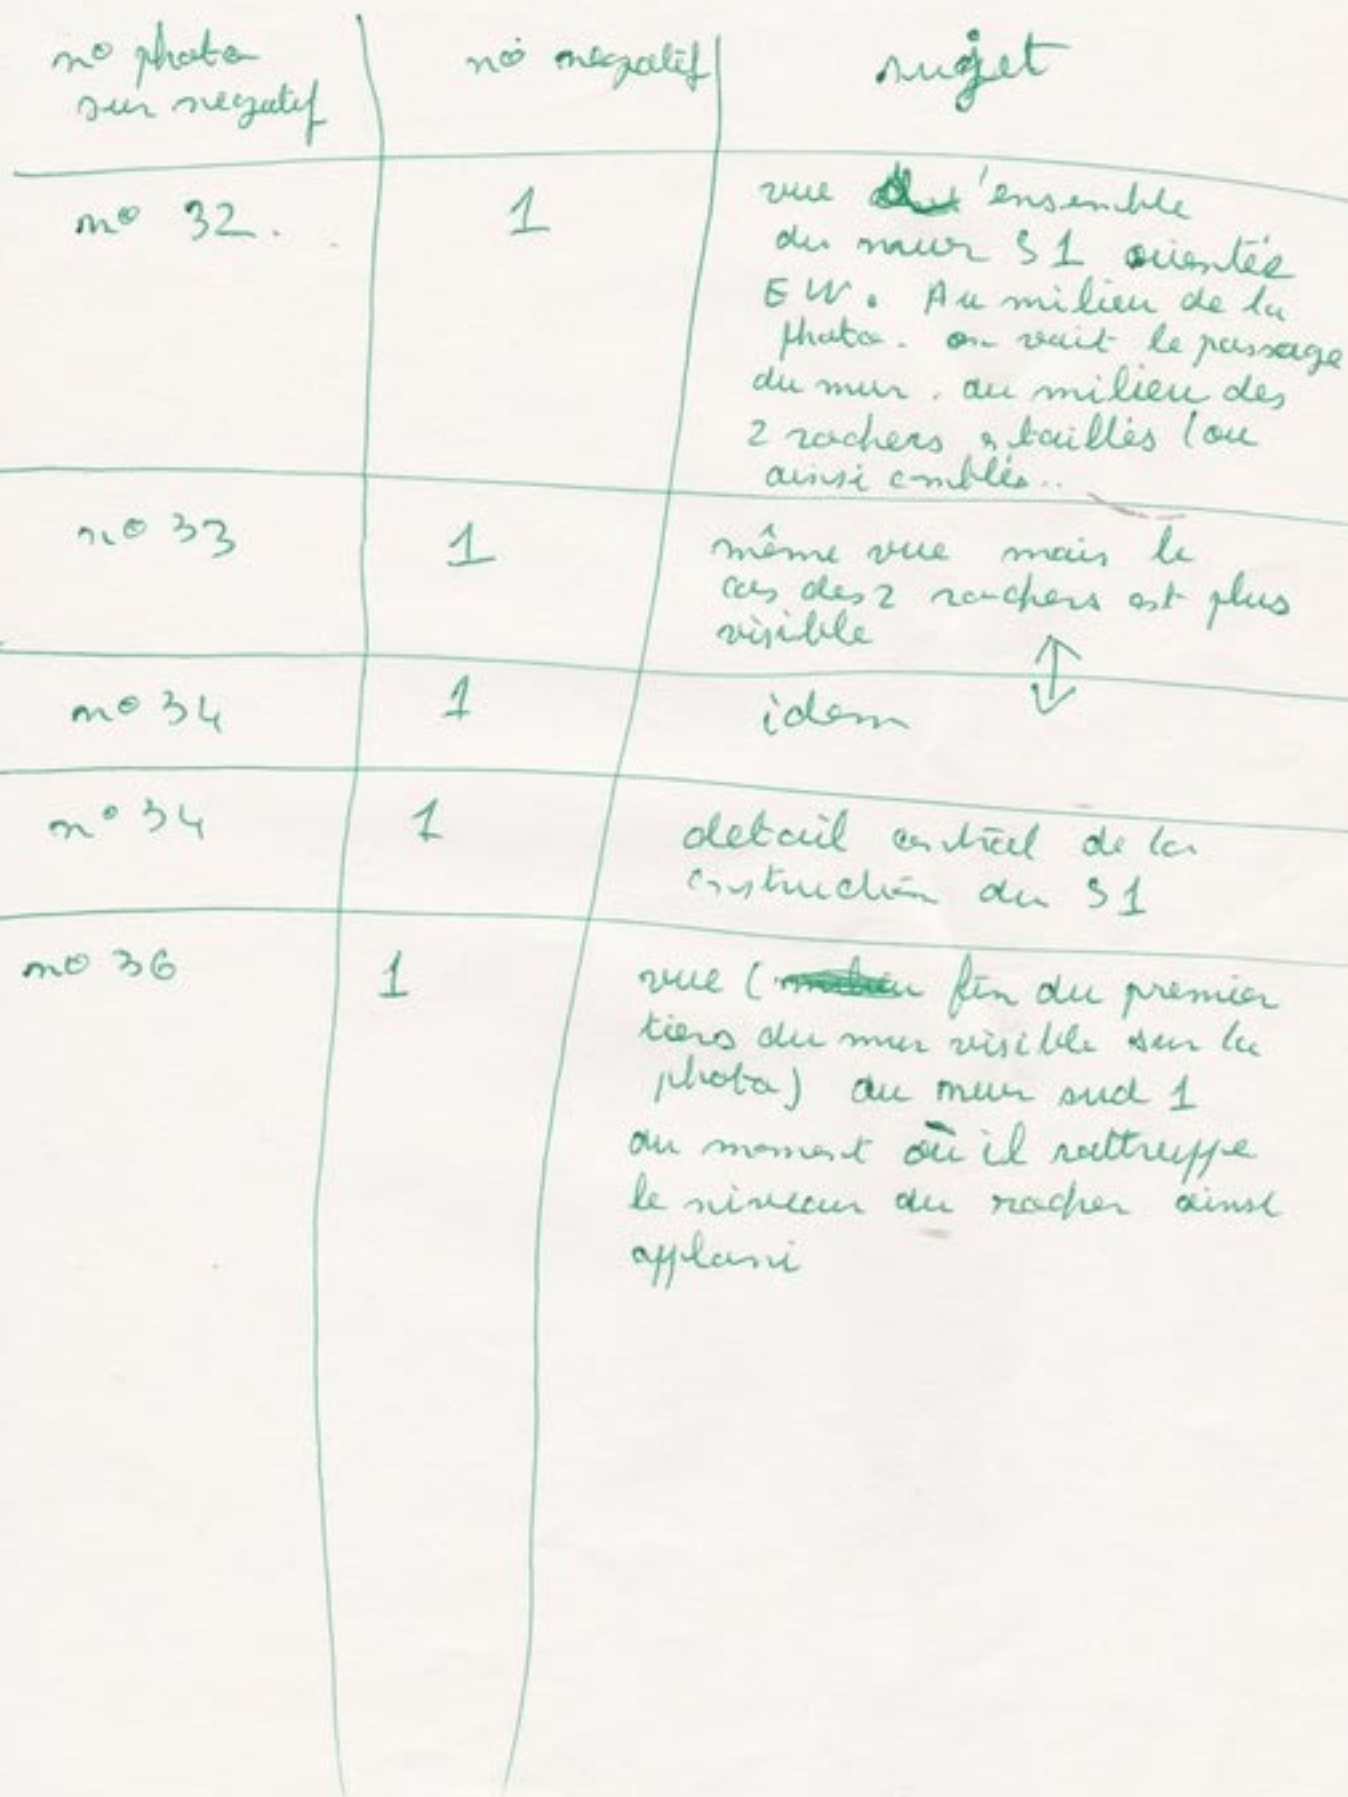 no photo
sur negatif
no negatif
sujet
no 32.
1
vue d'ensemble
du mur S1 orientée
EW. Au milieu de la
photo. on voit le passage
du mur. au milieu des
2 rochers taillés (ou
ainsi comblés..
no 33
1
même vue mais le
cas des 2 rochers est plus
visible
no 34
1
idem
no 34
1
detail central de la
construction du S1
no 36
1
vue ( fin du premier
tiers du mur visible sur la
photo) du mur sud 1
au moment où il rattruppe
le niveau du rocher ainsi
applani